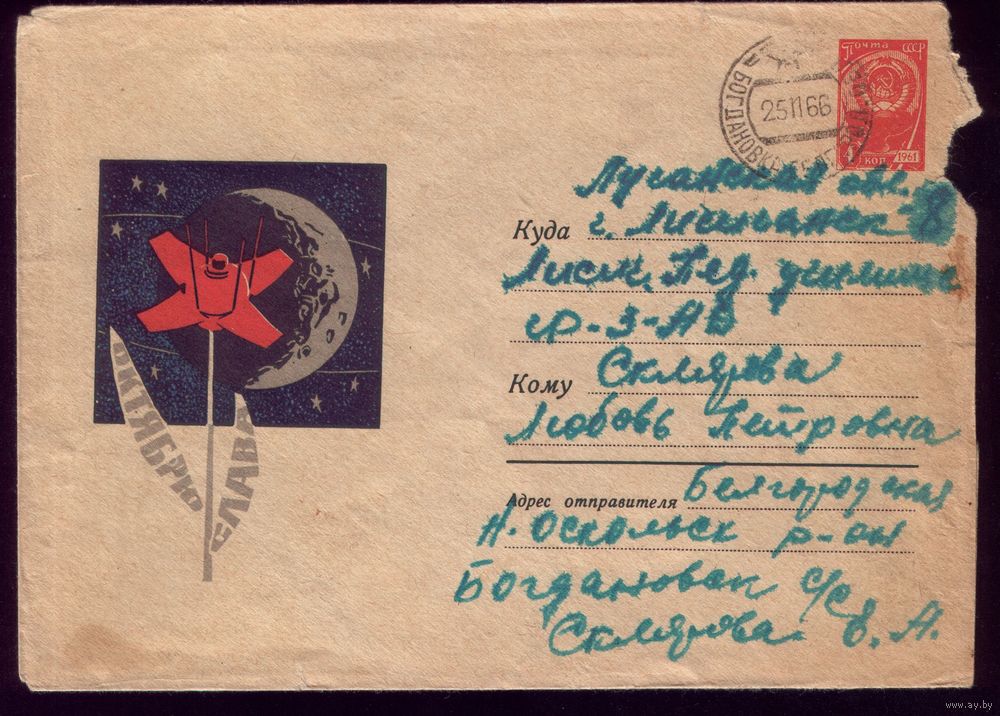 Почта СССР
КОП 1961
БОГДАНОВКА
251166
Луганская обл.
Куда г. Лисичанск 8
Лисич. Пед. училище
гр-3-АВ
Кому Склярова
Любовь Петровна
Адрес отправителя Белгородская
Н. Оскольск р-он
Богдановск с/с
Склярова В. А.
ОКТЯБРЮ
СЛАВА
www.ay.by